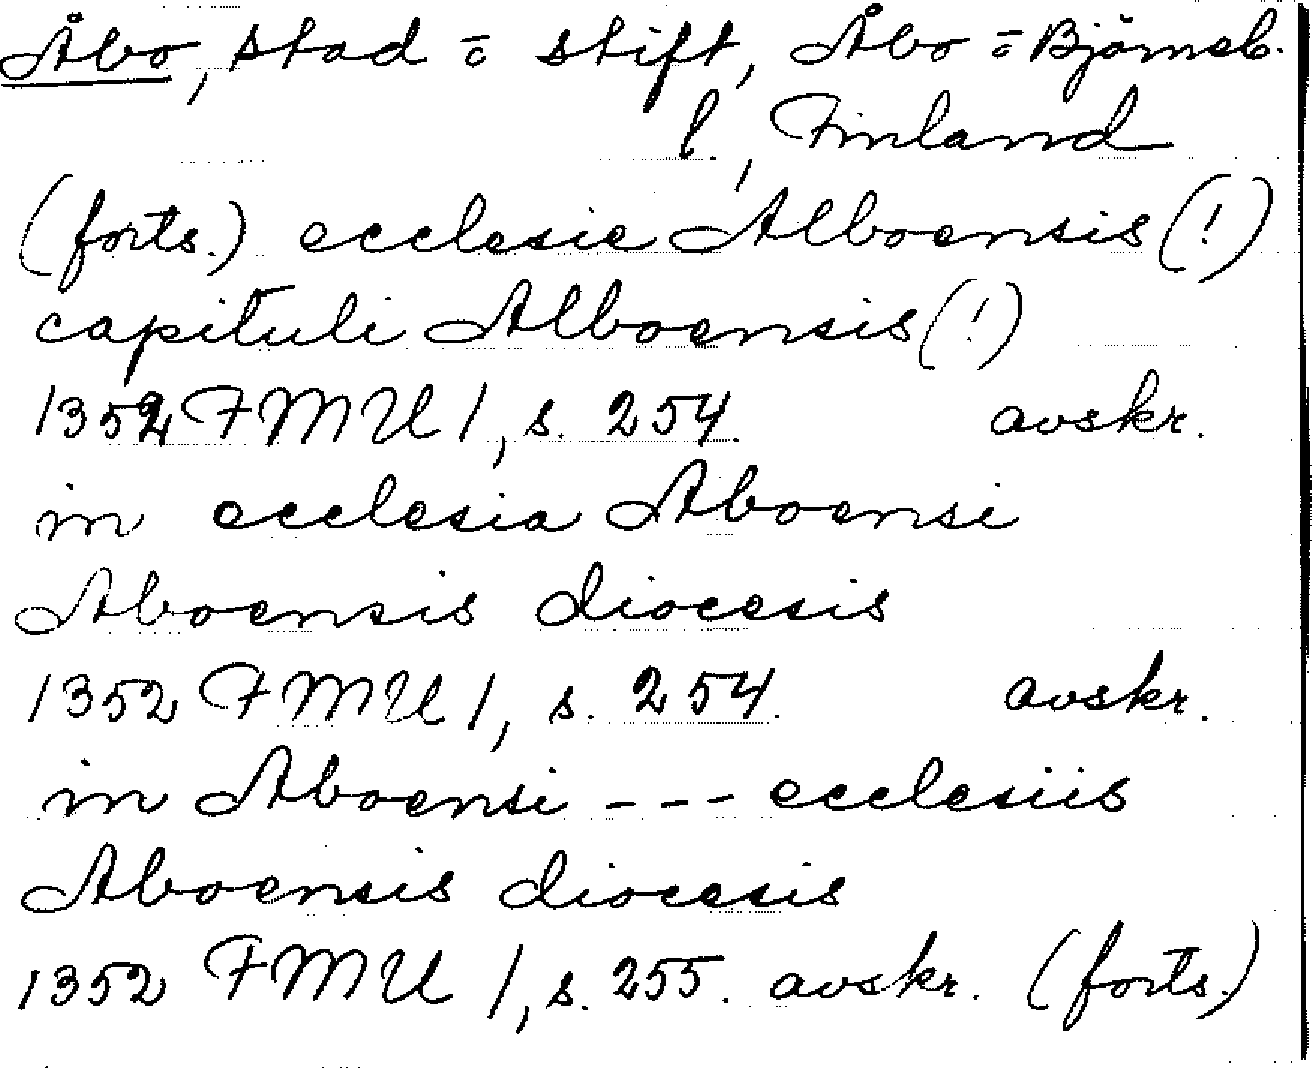 Åbo, stad o stift, Åbo o Björneb.
l, Finland
(forts.) ecclesie Alboensis (!)
capituli Alboensis (!)
1352 FMU 1, s. 254. avskr.
in ecclesia Aboensi
Aboensis diocesis
1352 FMU 1, s. 254. avskr.
in Aboensi --- ecclesiis
Aboensis diocesis
1352 FMU 1, s. 255. avskr. (forts.)